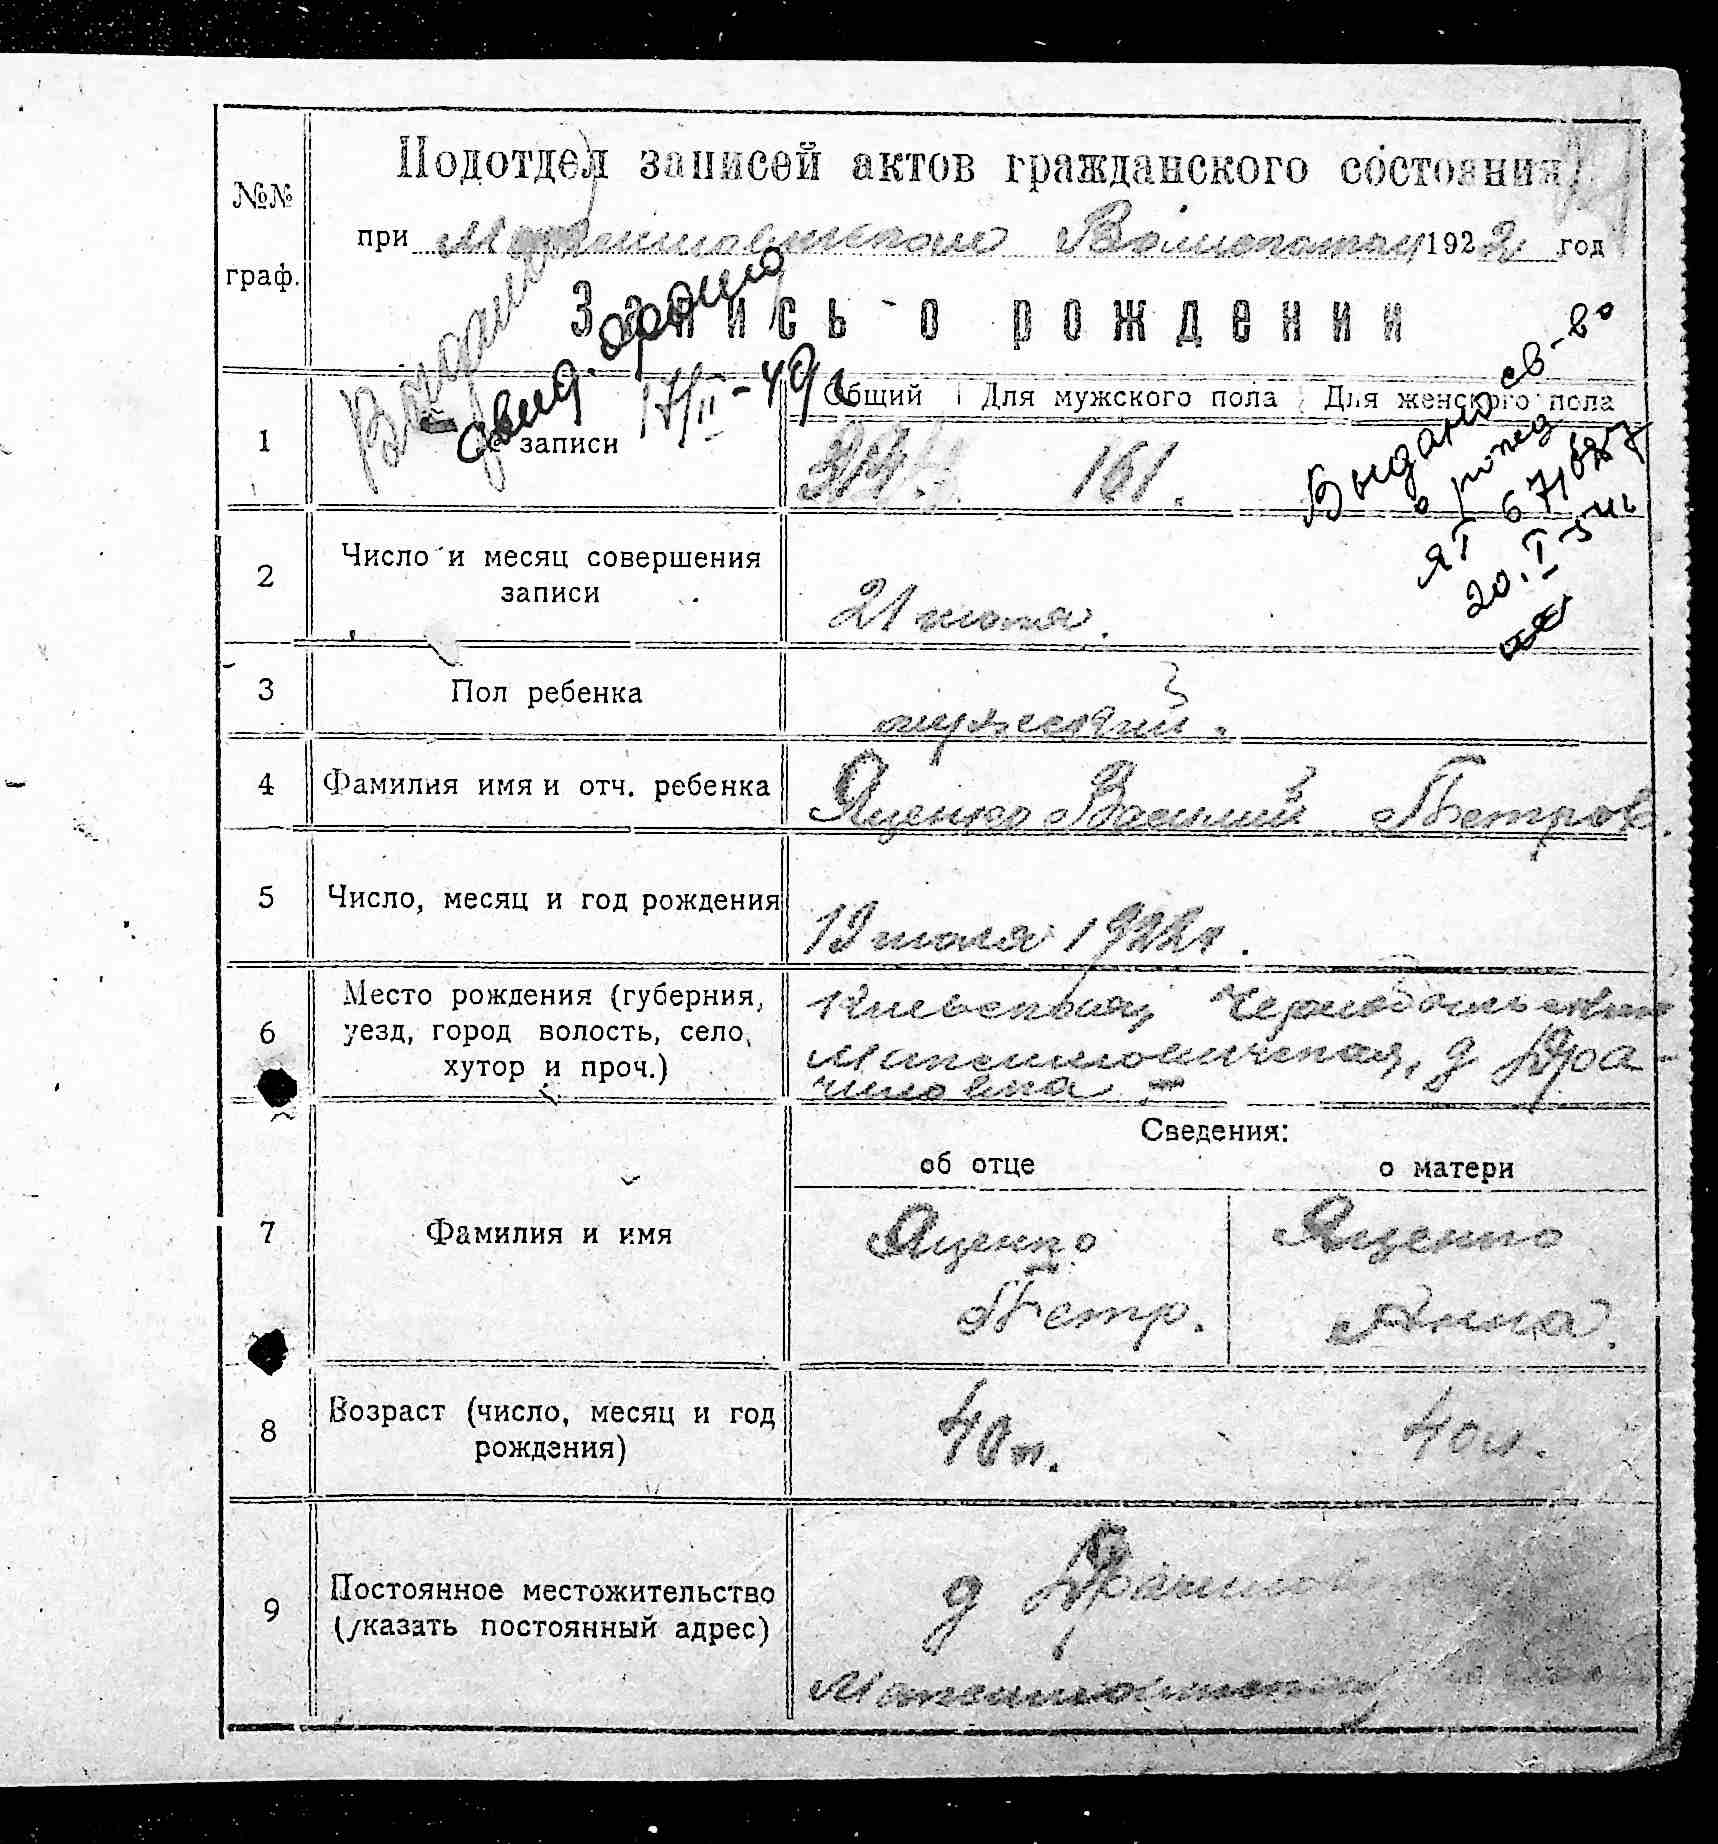 №№
граф.
Подотдел записей актов гражданского состояния
при Волисполкому 1922 год
Запись о рождении
1
записи
Общий
Для мужского пола
Для женского пола
161.
17/II-49
Выдано св-во
о рожд
ЯТ
20.I-
2
Число и месяц совершения
записи
21 июля.
3
Пол ребенка
мужской.
4
Фамилия имя и отч. ребенка
Яценко Василий Петров.
5
Число, месяц и год рождения
19 июля 1922г.
6
Место рождения (губерния,
уезд, город волость, село,
хутор и проч.)
Киевской, Чернобыльской
Максимовическая, д Дра-
чиловка
Сведения:
об отце
о матери
7
Фамилия и имя
Яценко
Петр.
Яценко
Анна.
8
Возраст (число, месяц и год
рождения)
40 л.
40 л.
9
Постоянное местожительство
(указать постоянный адрес)
д